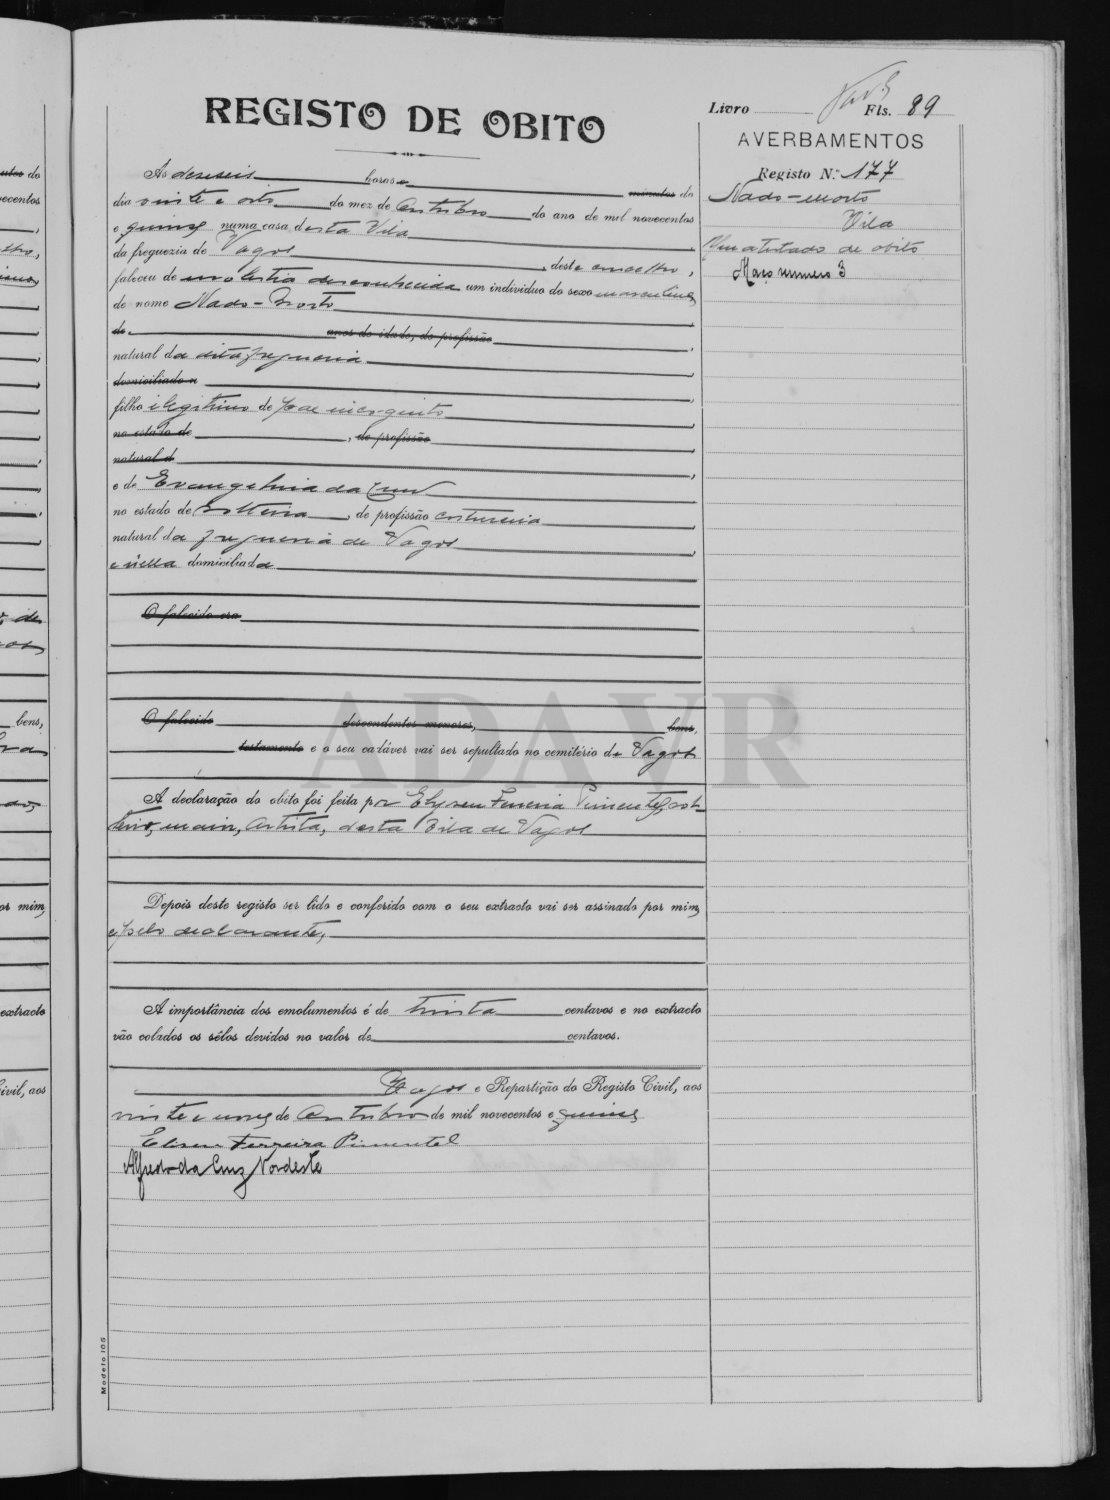 REGISTO DE OBITO
Ás deseseis horas e minutos do
dia vinte e oito do mez de Outubro do ano de mil novecentos
e quinze numa casa desta Vila
da freguezia de Vagos, deste concelho,
faleceu de molestia desconhecida um individuo do sexo masculino
de nome Nado-Morto
de anos de idade, de profissão
natural da dita freguesia
domiciliado n
filho ilegitimo de pae incognito
no estado de, de profissão
natural d
e de Evangelina da Cruz
no estado de solteira, de profissão costureira
natural da freguesia de Vagos
e nella domiciliada
O falecido era
O falecido descendentes menores, bens,
testamento e o seu cadáver vai ser sepultado no cemitério de Vagos
A declaração do obito foi feita por Elyseu Ferreira Pimentel, sol-
teiro, maior, artista, desta Vila de Vagos
Depois deste registo ser lido e conferido com o seu extracto vai ser assinado por mim,
e pelo declarante,
A importância dos emolumentos é de trinta centavos e no extracto
vão colados os sêlos devidos no valor de centavos.
Vagos e Repartição do Registo Civil, aos
vinte e nove de Outubro de mil novecentos e quinze
Eliseu Ferreira Pimentel
Alfredo da Cruz Nordeste
Modelo 105
Livro Fls. 89
AVERBAMENTOS
Registo N.º 177
Nado-morto
Vila
Um atestado de obito
Março numero 3
ADAVR
utos do
vecentos
bens,
or mim,
extracto
Civil, aos